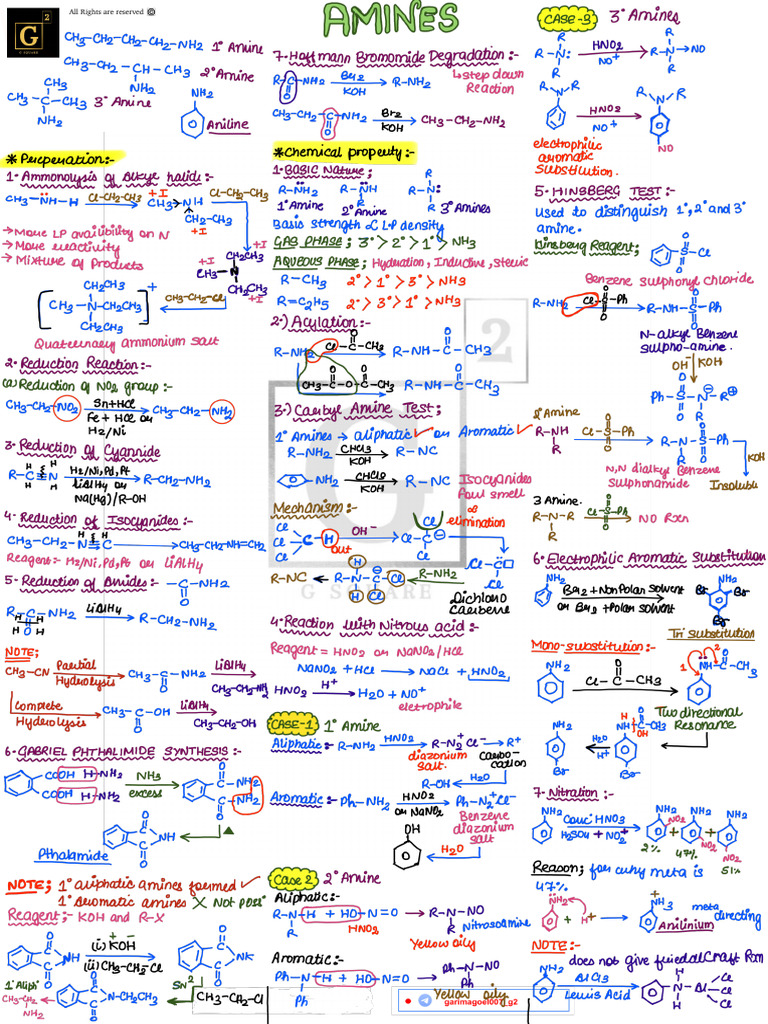 G 2
G SQUARE
All Rights are reserved ©
AMINES
CH3-CH2-CH2-CH2-NH2 1° Amine
CH3-CH2-CH-CH3 2° Amine
NH2
CH3
CH3-C-CH3 3° Amine
NH2
NH2
Aniline
* Preperation:-
1. Ammonolysis of Alkyl halide:-
CH3-N̈H-H Cl-CH2-CH3 CH3→NH +I Cl-CH2-CH3
CH2-CH3 +I
→ More LP availibility on N
→ More reactivity
→ Mixture of Products
CH2CH3 +I
CH3-N
CH2CH3 +I
+I
CH2CH3 +
[CH3-N-CH2CH3] CH3-CH2-Cl
CH2CH3
Quaternary ammonium salt
2. Reduction Reaction:-
(a) Reduction of NO2 group:-
CH3-CH2-NO2 Sn+HCl CH3-CH2-NH2
Fe + HCl or
H2/Ni
3. Reduction of Cyannide
H H
R-C≡N H2/Ni,Pd,Pt R-CH2-NH2
H H LiAlH4 or
Na(Hg)/R-OH
4. Reduction of Isocyanides:-
CH3-CH2-N≡C CH3-CH2-NH=CH2
Reagent- H2/Ni,Pd,Pt or LiAlH4
5. Reduction of Amides:- O
-C-NH2
R-C-NH2 LiAlH4 R-CH2-NH2
H O H
NOTE;
CH3-CN Partial Hydrolysis CH3-C-NH2 LiAlH4 CH3-CH2-NH2
O
Complete Hydrolysis CH3-C-OH LiAlH4 CH3-CH2-OH
O
6. GABRIEL PHTHALIMIDE SYNTHESIS:-
COOH H-NH2 NH3 C-NH2
COOH H-NH2 excess C-NH2
O
C
NH
C
O
Pthalamide
NOTE; 1° aliphatic amines formed ✓
1° Aromatic amines X Not poss
Reagent;- KOH and R-X
NH (i) KOH NK
(ii) CH3-CH2-Cl
1° Aliph
CH3-CH2-NH2
N-CH2-CH3 SN2 CH3-CH2-Cl
7. Hoffmann Bromomide Degradation:-
R-C-NH2 Br2 R-NH2 ↳ step down
O KOH Reaction
CH3-CH2-C-NH2 Br2 CH3-CH2-NH2
O KOH
* Chemical property:-
1. BASIC Nature;
R-N̈H2 R-N̈H R-N:
R R R
1° Amine 2° Amine 3° Amines
Basic strength ∝ L·P density
GAS PHASE; 3° > 2° > 1° > NH3
AQUEOUS PHASE; Hydration, Inductive, steric
R-CH3 2° > 1° > 3° > NH3
R=C2H5 2° > 3° > 1° > NH3
2.) Acylation:-
R-NH2 Cl-C-CH3 R-NH-C-CH3
CH3-C-O-C-CH3 R-NH-C-CH3
3.) Carbyl Amine Test;
1° Amines → aliphatic ✓ or Aromatic ✓
R-NH2 CHCl3 R-NC
KOH
NH2 CHCl3 R-NC Isocyanides
KOH Foul smell
Mechanism:- α elimination
Cl
Cl C-H OH⁻ Cl C⊖
Cl out Cl
R-NC R-N-C⊖ Cl R-NH2 Cl C̈
Cl
Dichloro
carbene
4. Reaction with Nitrous acid:-
Reagent = HNO2 or NaNO2/HCl
NaNO2 + HCl → NaCl + HNO2
HNO2 H+ H2O + NO+
eletrophile
CASE-1 1° Amine
Aliphatic:- R-NH2 HNO2 R-N2+Cl- → R+
diazonium salt. Carbo-cation
R-OH H2O
Aromatic:- Ph-NH2 HNO2 Ph-N2+Cl-
or NaNO2 Benzene
diazonium
salt
OH
H2O
Case 2 2° Amine
Aliphatic:-
R-N-H + HO-N=O R-N-NO
R HNO2 R Nitrosoamine
Yellow oily
Aromatic:-
Ph Ph-N-NO
Ph-N-H + HO-N=O Ph
Yellow oily
garimagoel007_g2
CASE-3 3° Amines
R R
R-N: HNO2 R-N→NO
R NO+ R
R N R R N R
HNO2
NO+
NO
electrophilic
aromatic
substitution.
5. HINSBERG TEST:-
used to distinguish 1°, 2° and 3°
amine.
Hinsberg Reagent; O
S-Cl
O
Benzene sulphonyl chloride
R-NH2 Cl-S-Ph R-NH-S-Ph
N-alkyl Benzene
sulpho-amine.
OH⁻ KOH
Ph-S-N-R
2° Amine
R-NH Cl-S-Ph R-N-S-Ph
R R KOH
N,N dialkyl Benzene
Sulphonamide Insoluble
3 Amine.
R-N-R Cl-S-Ph NO Rxn
R
6. Electrophilic Aromatic Substitution
NH2 Br2 + Non Polar solvent NH2
or Br2 + Polar solvent Br Br
Br
Tri substitution
Mono-substitution:-
NH2 O 1 2 O
Cl-C-CH3 NH-C-CH3
Two directional
Resonance
NH2 H O
H2O N-C-CH3
H+ OH
Br Br
7. Nitration:-
NH2 Conc. HNO3 NH2 NH2 NH2
H2SO4 + NO2+ NO2 + NO2 + NO2
2% 47% 51%
Reason; for why meta is
47%
N̈H2 + H+ → NH3 + meta
directing
Anilinium
NOTE:-
does not give friedal craft Rxn
NH2 AlCl3 H Cl
Lewis Acid N-Al-Cl
H Cl